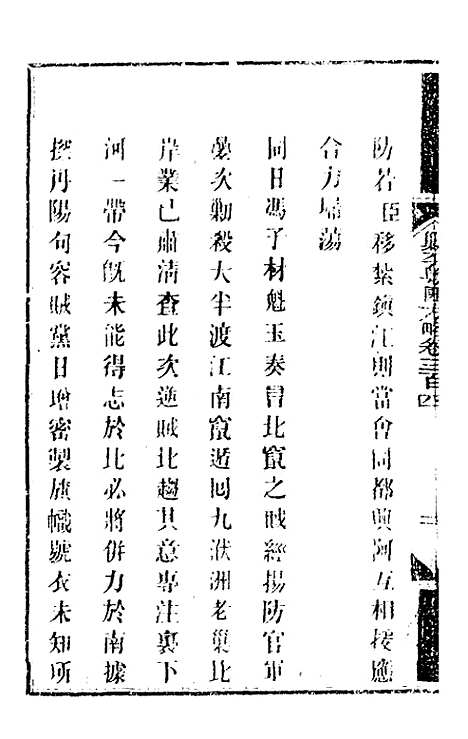 防若臣移紮鎮江則當會同都興阿互相接應
合力埽蕩
同日馮子材魁玉奏曰北竄之賊經揚防官軍
疊次勦殺大半渡江南竄遁回九洑洲老巢北
岸業已肅清查此次逆賊北趨其意專注裏下
河一帶今旣未能得志於北必將併力於南據
探丹陽句容賊黨日增密製旗幟號衣未知所
卷三百四